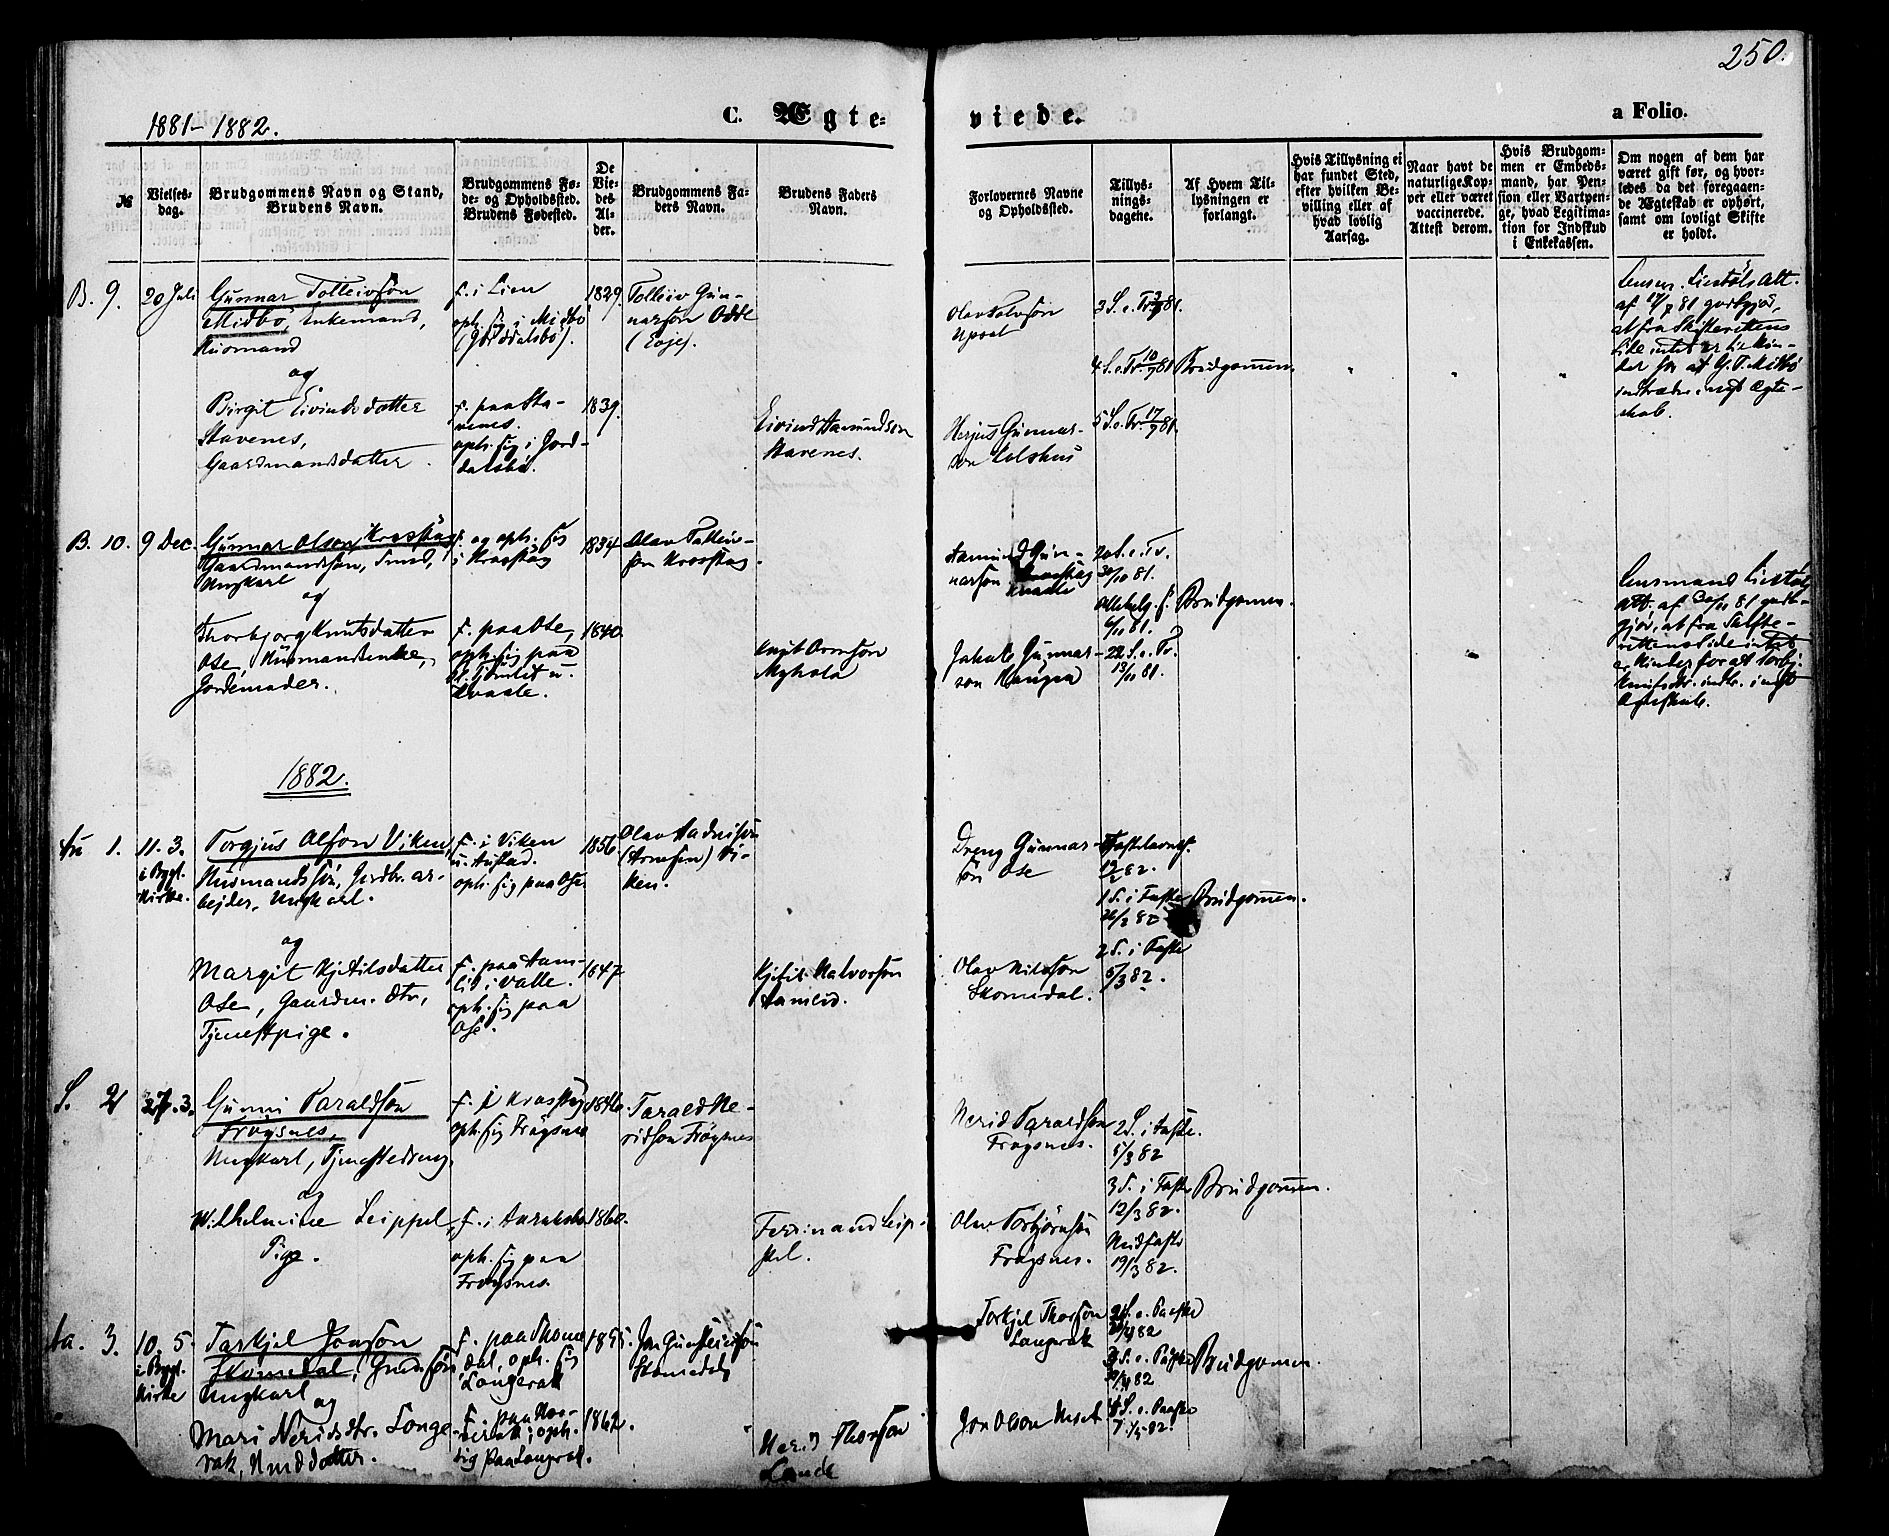 250.
1881-1882.
C. Ægte-
viede.
a Folio.
№
Vielses-
dag.
Brudgommens Navn og Stand,
Brudens Navn.
Brudgommens Fø-
de- og Opholdssted.
Brudens Fødested.
De
Vie-
des
Al-
der.
Brudgommens Fa-
ders Navn.
Brudens Faders
Navn.
Forlovernes Navne
og Opholdssted.
Tillys-
nings-
dagene.
Af Hvem Til-
lysningen er
forlangt.
Hvis Tillysning ei
har fundet Sted,
efter hvilken Be-
villing eller af
hvad lovlig
Aarsag.
Naar havt de
naturlige Kop-
per eller været
vaccinerede.
Attest derom.
Hvis Brudgom-
men er Embeds-
mand, har Pen-
sion eller Vartpen-
ge, hvad Legitima-
tion for Indskud
i Enkekassen.
Om nogen af dem har
været gift før, og hvor-
ledes da det foregaaen-
de Ægteskab er ophørt,
samt om lovligt Skifte
er holdt.
B. 9.
20 Juli
Gunnar Tolleivsøn
Midbø, Enkemand,
Husmand
og
Birgit Eivindsdatter
Stavenes,
Gaardmandsdatter.
F. i Lien
oph. sig i Midbø
F. paa Sta-
venes.
oph. sig i Jord-
dalsbø.
1829.
1839.
Tolleiv Gun-
narsøn Odde
Eivind Aamundsøn
Stavenes.
Olav Salvesøn
Herjus Gunnar-
søn
3 S. e. Tr. 3/7 81.
4 S. e. Tr. 10/7 81
5 S. e. Tr. 17/7 81
Brudgommen.
Lensm. Liestøls Att.
af 17/7 81 godtgjør,
at fra Skifterettens
Side intet er til Hin-
der for at G. T. Midbø
indtræder i nyt Ægte-
skab.
B. 10.
9 Dec.
Gunnar Olsøn Kroshaug
Gaardmandssøn, Smed,
Ungkarl
og
Thorbjørg Knutsdatter
Ose, Husmandsenke,
Jordemoder.
F. og oph. sig
i Kroshaug
F. paa Ose,
oph. sig paa
1834
1840.
Olav Tolleiv-
søn Kroshaug.
Knut Ormsøn
Aamund Gun-
narsøn
Jakob Gunnar-
søn Haugen
20 S. e. Tr.
30/10 81.
Allehelg. f.
6/11 81.
22 S. e. Tr.
13/11 81.
Brudgommen.
Lensmand Liestøls
Att. af 30/11 81 godt-
gjør, at fra Skifte-
rettens Side intet
er Hinder for at Torbj.
Knutsdtr. indtr. i nyt
Ægteskab.
1882.
Au 1.
11. 3.
i Bygl.
Kirke.
Torgjus Olsøn Viken,
Husmandssøn, Jordbr. ar-
bejder, Ungkarl.
og
Margit Kjetilsdatter
Ose, Gaardm. Dtr.,
Tjenestpige.
F. i Viken
i Austad.
oph. sig paa Ose
F. paa Aam-
lid i Valle.
oph. sig paa
Ose.
1856.
1847
Olav Aadnesøn
(Arnesen) Vi-
ken.
Kjetil Halvorsøn
Aamlid.
Dreng Gunnar-
søn Ose
Olav Nilssøn
Skomedal.
Fastelavnsf.
19/2 82.
1 S. i Faste
26/2 82
2 S. i Faste
5/3 82.
Brudgommen.
S. 2
27. 3.
Gunni Taraldsøn
Frøysnes,
Ungkarl, Tjenestedreng
og
Wilhelmine Leippel,
Pige.
F. i Kroshaug
oph. sig Frøysnes
F. i Aaraksbø
oph. sig paa
Frøysnes.
1846.
1860.
Tarald Ne-
ridsøn Frøysnes
Ferdinand Leip-
pel.
Nerid Taraldsøn
Frøysnes.
Olav Torbjørnsøn
Frøysnes.
2 S. i Faste.
5/3 82
3 S. i Faste
12/3 82.
Midfaste
19/3 82.
Brudgommen.
Au. 3.
10. 5.
i Bygl.
Kirke
Tarkjel Jonsøn
Skomedal, Grmdsøn,
Ungkarl
og
Mari Neridsdtr. Longe-
rak,
F. paa Skome-
dal, oph. sig
Longerak
sig paa Longerak.
1855.
1862.
Jon Gunsteinsøn
Skomedal
Nerid Thorsøn
Lande
Torkjel Thorsøn
Langerak
Jon Olsøn Neset
2 S. e. Paaske
3 S. e. Paaske
4 S. e. Paaske
7/5 82.
Brudgommen.